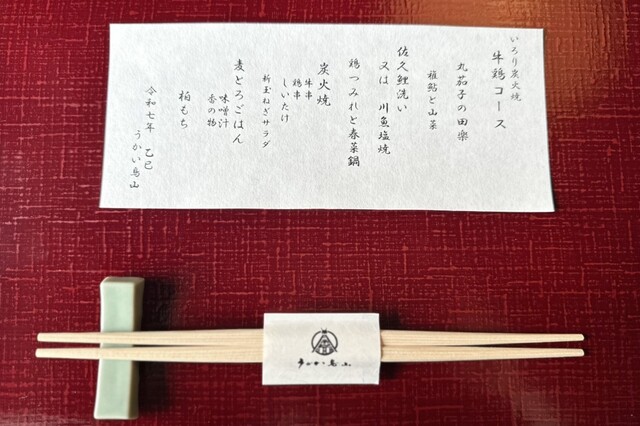 いろり炭火焼
牛鶏コース
丸茄子の田楽
稚鮎と山菜
佐久鯉洗い
又は 川魚塩焼
鶏つみれと春菜鍋
炭火焼
牛串
鶏串
しいたけ
新玉ねぎサラダ
麦とろごはん
味噌汁
香の物
柏もち
令和七年 乙巳
うかい鳥山
うかい鳥山